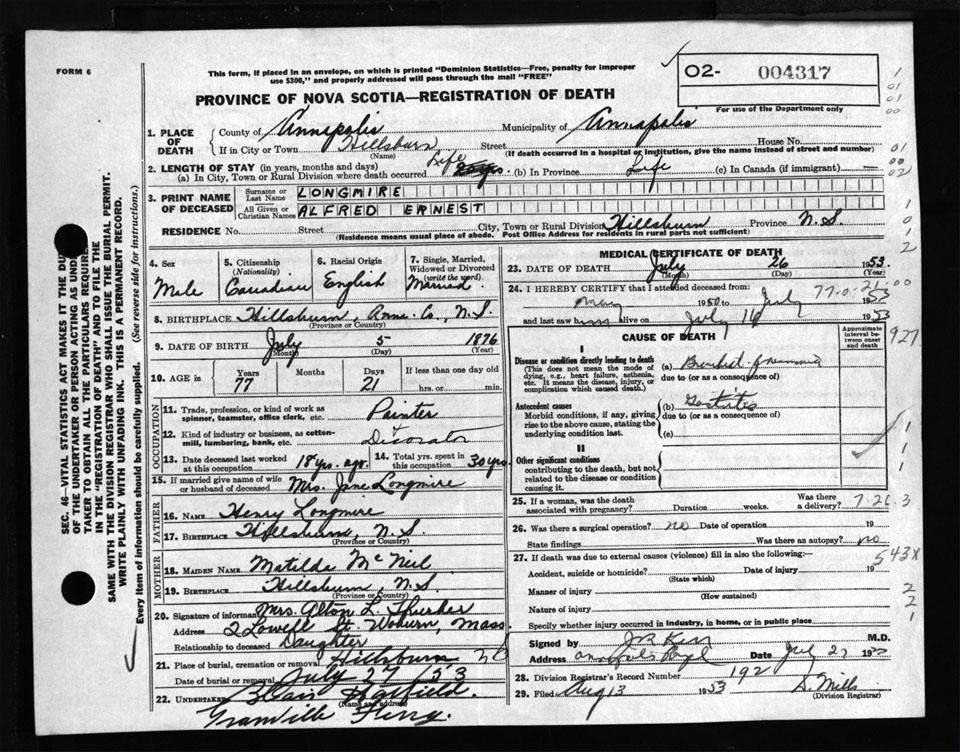 FORM 6
This form, if placed in an envelope, on which is printed "Dominion Statistics—Free, penalty for improper
use $300," and properly addressed will pass through the mail "FREE"
O2- 004317
For use of the Department only
PROVINCE OF NOVA SCOTIA—REGISTRATION OF DEATH
1. PLACE OF DEATH { County of Annapolis Municipality of Annapolis
If in City or Town Hillsburn Street House No.
(Name) (If death occurred in a hospital or institution, give the name instead of street and number)
2. LENGTH OF STAY (in years, months and days)
(a) In City, Town or Rural Division where death occurred Life (b) In Province Life (c) In Canada (if immigrant)
3. PRINT NAME OF DECEASED
Surname or Last Name LONGMIRE
All Given or Christian Names ALFRED ERNEST
RESIDENCE No. Street City, Town or Rural Division Hillsburn Province N.S.
(Residence means usual place of abode. Post Office Address for residents in rural parts not sufficient)
SEC. 46—VITAL STATISTICS ACT MAKES IT THE DU
OF THE UNDERTAKER OR PERSON ACTING AS UND
TAKER TO OBTAIN ALL THE PARTICULARS REQUIRE
IN THE "REGISTRATION OF DEATH" AND TO FILE THE
SAME WITH THE DIVISION REGISTRAR WHO SHALL ISSUE THE BURIAL PERMIT.
WRITE PLAINLY WITH UNFADING INK. THIS IS A PERMANENT RECORD.
Every item of information should be carefully supplied. (See reverse side for instructions.)
4. Sex Male
5. Citizenship (Nationality) Canadian
6. Racial Origin English
7. Single, Married, Widowed or Divorced (write the word) Married
8. BIRTHPLACE Hillsburn, Anna. Co., N.S.
(Province or Country)
9. DATE OF BIRTH July 5 1876
(Month) (Day) (Year)
10. AGE in Years 77 Months Days 21 If less than one day old hrs. or min.
OCCUPATION
11. Trade, profession, or kind of work as spinner, teamster, office clerk, etc. Painter
12. Kind of industry or business, as cotton-mill, lumbering, bank, etc. Decorator
13. Date deceased last worked at this occupation 18 yrs. ago.
14. Total yrs. spent in this occupation 30 yrs.
15. If married give name of wife or husband of deceased Mrs. Jane Longmire
FATHER
16. NAME Henry Longmire
17. BIRTHPLACE Hillsburn, N.S.
(Province or Country)
MOTHER
18. MAIDEN NAME Matilda McNeil
19. BIRTHPLACE Hillsburn, N.S.
(Province or Country)
20. Signature of informant Mrs. Alton L. Thurber
Address 2 Lowell St. Woburn, Mass.
Relationship to deceased Daughter
21. Place of burial, cremation or removal Hillsburn, NS
Date of burial or removal July 27 53
22. UNDERTAKER Blair Hatfield.
(Name and address)
Granville Ferry.
MEDICAL CERTIFICATE OF DEATH
23. DATE OF DEATH July 26 1953.
(Month) (Day) (Year)
24. I HEREBY CERTIFY that I attended deceased from:
May 1950 to July 1953
77-0-21-00
and last saw him alive on July 16 1953
CAUSE OF DEATH
Approximate interval between onset and death
927
I
Disease or condition directly leading to death
(This does not mean the mode of dying, e.g., heart failure, asthenia, etc. It means the disease, injury, or complication which caused death.)
(a) Bronchial pneumonia
due to (or as a consequence of)
Antecedent causes
Morbid conditions, if any, giving rise to the above cause, stating the underlying condition last.
(b) Gastritis
due to (or as a consequence of)
(c)
II
Other significant conditions
contributing to the death, but not related to the disease or condition causing it.
25. If a woman, was the death associated with pregnancy? Duration weeks. Was there a delivery?
7-26-3
26. Was there a surgical operation? no Date of operation 19
State findings Was there an autopsy? no
27. If death was due to external causes (violence) fill in also the following:—
543X
Accident, suicide or homicide? Date of injury 19
(State which)
Manner of injury
(How sustained)
Nature of injury
Specify whether injury occurred in industry, in home, or in public place
Signed by M.D.
Address Annapolis Royal Date July 27 19
28. Division Registrar's Record Number 192
29. Filed Aug 13 1953 Mills
(Division Registrar)